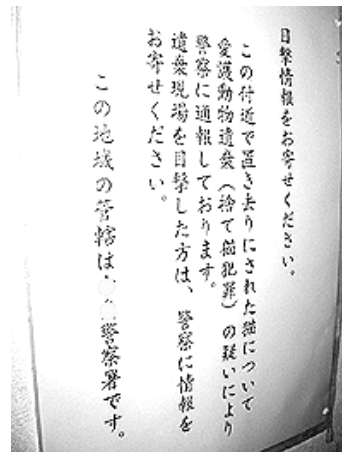 目撃情報をお寄せください。
この付近で置き去りにされた猫について
愛護動物遺棄（捨て猫犯罪）の疑いにより
警察に通報しております。
遺棄現場を目撃した方は、警察に情報を
お寄せください。
この地域の管轄は
警察署です。